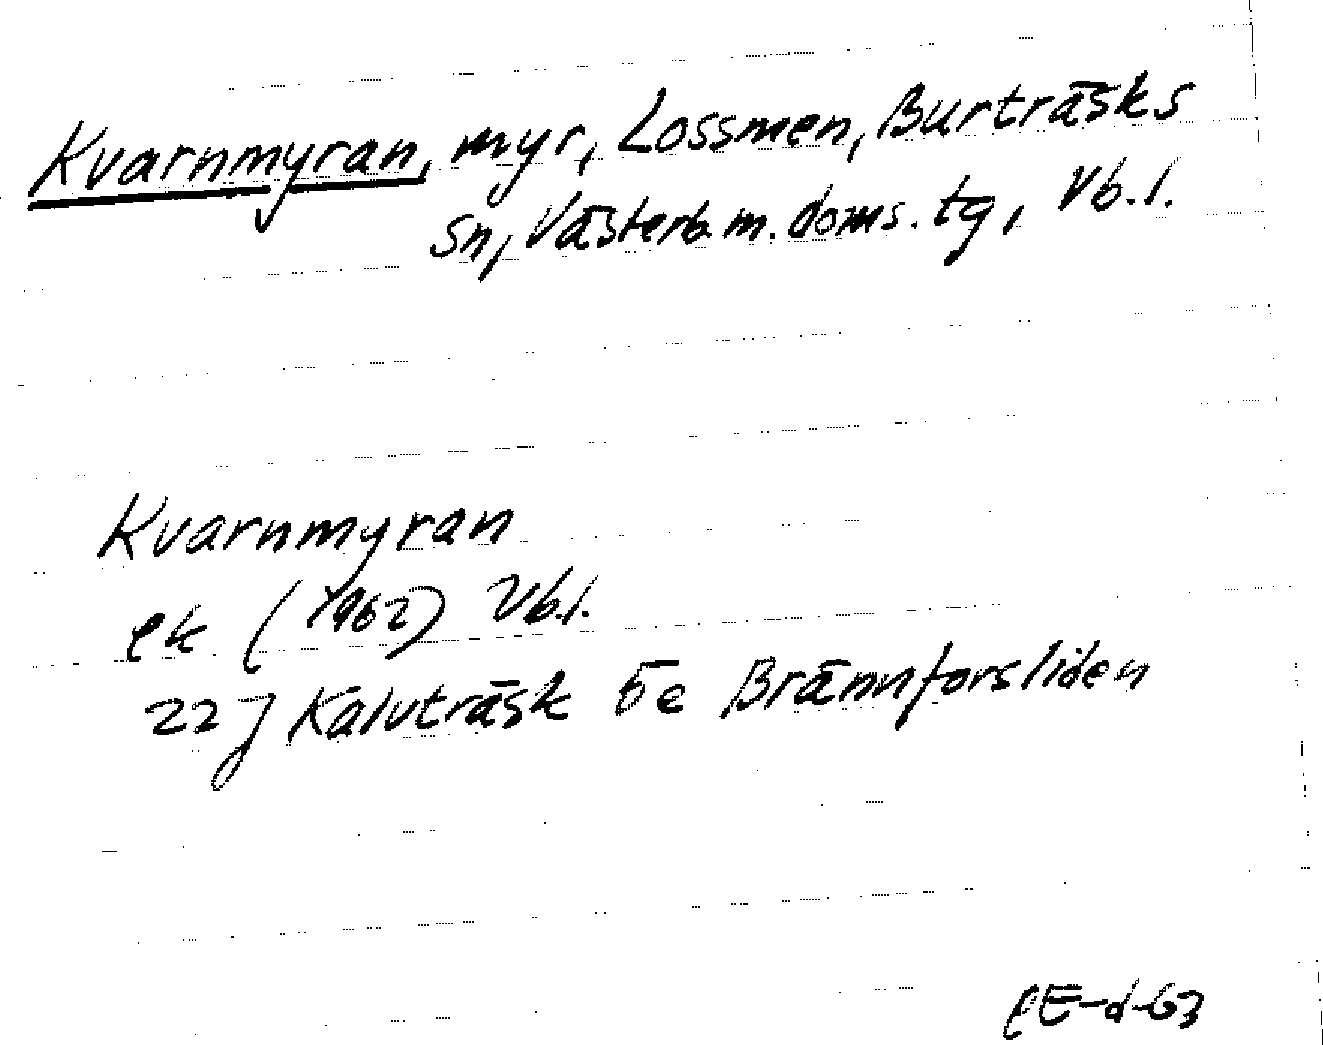 Kvarnmyran, myr, Lossmen, Burträsks
sn, Västerb. m. doms. tg, Vb. l.
Kvarnmyran
ek (1962) Vb. l.
22 J Kalvträsk 5e Brännforsliden
CE-d-63